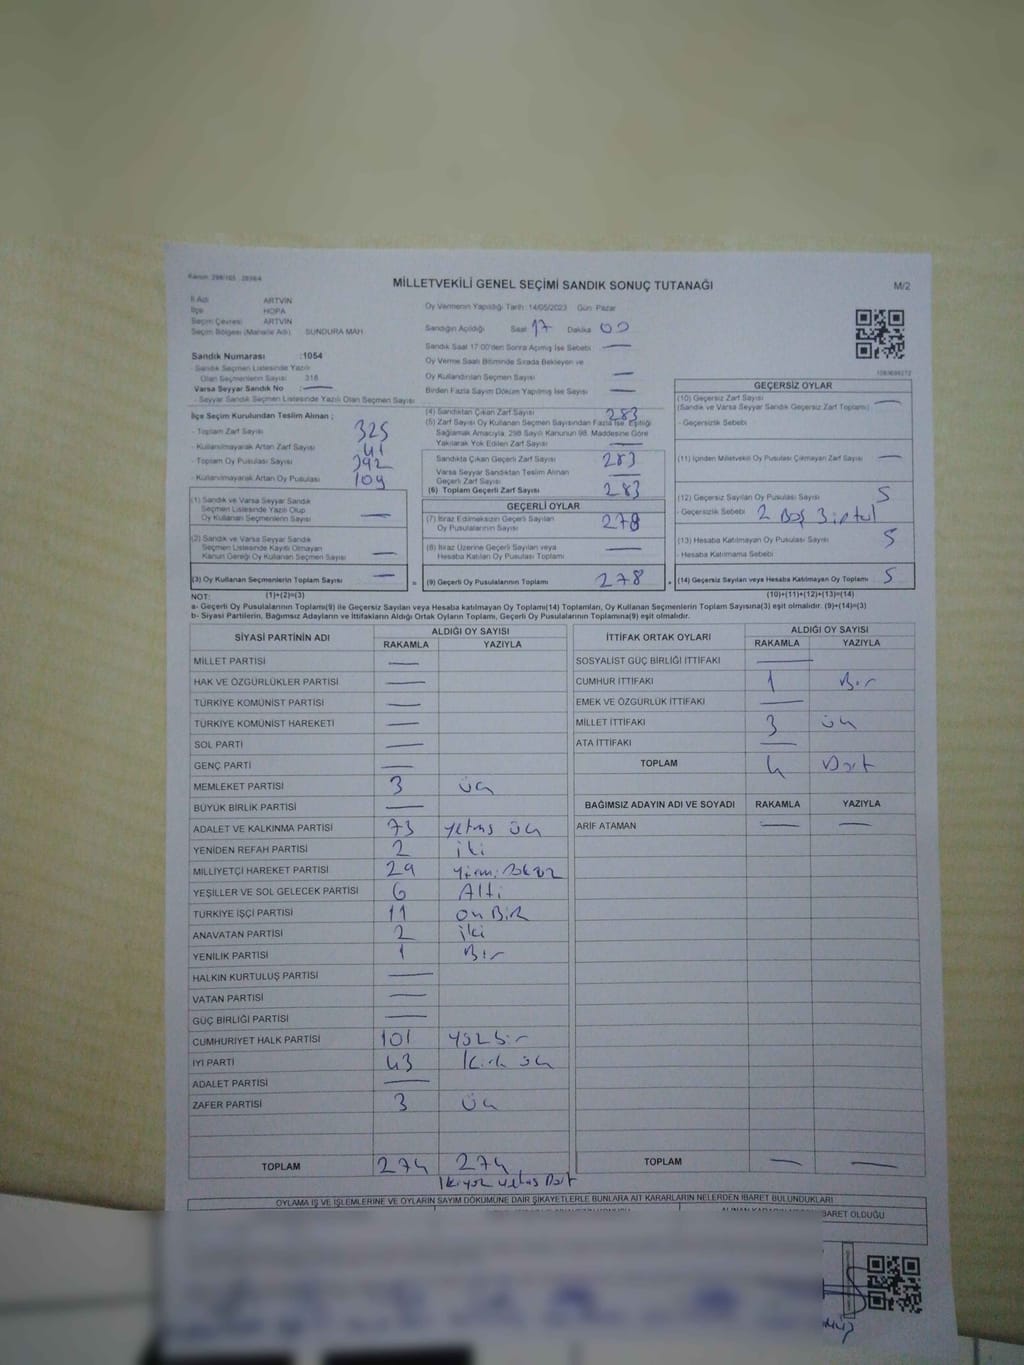 Kanun: 298/105 , 2839/4
MİLLETVEKİLİ GENEL SEÇİMİ SANDIK SONUÇ TUTANAĞI
M/2
İl Adı ARTVİN
İlçe HOPA
Seçim Çevresi ARTVİN
Seçim Bölgesi (Mahalle Adı) SUNDURA MAH.
Sandık Numarası :1054
Sandık Seçmen Listesinde Yazılı
Olan Seçmenlerin Sayısı 316
Varsa Seyyar Sandık No : —
- Seyyar Sandık Seçmen Listesinde Yazılı Olan Seçmen Sayısı
Oy Vermenin Yapıldığı Tarih: 14/05/2023 Gün: Pazar
Sandığın Açıldığı Saat 17 Dakika 00
Sandık Saat 17:00'den Sonra Açılmış İse Sebebi —
Oy Verme Saati Bitiminde Sırada Bekleyen ve
Oy Kullandırılan Seçmen Sayısı —
Birden Fazla Sayım Döküm Yapılmış İse Sayısı —
İlçe Seçim Kurulundan Teslim Alınan ;
- Toplam Zarf Sayısı 325
- Kullanılmayarak Artan Zarf Sayısı 41
- Toplam Oy Pusulası Sayısı
- Kullanılmayarak Artan Oy Pusulası 109
(1) Sandık ve Varsa Seyyar Sandık
Seçmen Listesinde Yazılı Olup
Oy Kullanan Seçmenlerin Sayısı —
(2) Sandık ve Varsa Seyyar Sandık
Seçmen Listesinde Kayıtlı Olmayan
Kanun Gereği Oy Kullanan Seçmen Sayısı —
(3) Oy Kullanan Seçmenlerin Toplam Sayısı —
(4) Sandıktan Çıkan Zarf Sayısı 283
(5) Zarf Sayısı Oy Kullanan Seçmen Sayısından Fazla İse, Eşitliği
Sağlamak Amacıyla, 298 Sayılı Kanunun 98. Maddesine Göre
Yakılarak Yok Edilen Zarf Sayısı —
Sandıkta Çıkan Geçerli Zarf Sayısı 283
Varsa Seyyar Sandıktan Teslim Alınan
Geçerli Zarf Sayısı —
(6) Toplam Geçerli Zarf Sayısı 283
GEÇERLİ OYLAR
(7) İtiraz Edilmeksizin Geçerli Sayılan
Oy Pusulalarının Sayısı 278
(8) İtiraz Üzerine Geçerli Sayılan veya
Hesaba Katılan Oy Pusulası Toplamı —
= (9) Geçerli Oy Pusulalarının Toplamı 278
GEÇERSİZ OYLAR
(10) Geçersiz Zarf Sayısı
(Sandık ve Varsa Seyyar Sandık Geçersiz Zarf Toplamı) —
- Geçersizlik Sebebi
(11) İçinden Milletvekili Oy Pusulası Çıkmayan Zarf Sayısı —
(12) Geçersiz Sayılan Oy Pusulası Sayısı 5
- Geçersizlik Sebebi 2 Boş 3 iptal
(13) Hesaba Katılmayan Oy Pusulası Sayısı 5
- Hesaba Katılmama Sebebi
+ (14) Geçersiz Sayılan veya Hesaba Katılmayan Oy Toplamı 5
NOT: (1)+(2)=(3) (10)+(11)+(12)+(13)=(14)
a- Geçerli Oy Pusulalarının Toplamı(9) ile Geçersiz Sayılan veya Hesaba katılmayan Oy Toplamı(14) Toplamları, Oy Kullanan Seçmenlerin Toplam Sayısına(3) eşit olmalıdır. (9)+(14)=(3)
b- Siyasi Partilerin, Bağımsız Adayların ve İttifakların Aldığı Oy Toplamı, Geçerli Oy Pusulalarının Toplamına(9) eşit olmalıdır.
SİYASİ PARTİNİN ADI ALDIĞI OY SAYISI
RAKAMLA YAZIYLA
MİLLET PARTİSİ —
HAK VE ÖZGÜRLÜKLER PARTİSİ —
TÜRKİYE KOMÜNİST PARTİSİ —
TÜRKİYE KOMÜNİST HAREKETİ —
SOL PARTİ —
GENÇ PARTİ —
MEMLEKET PARTİSİ 3 üç
BÜYÜK BİRLİK PARTİSİ —
ADALET VE KALKINMA PARTİSİ 73 yetmiş üç
YENİDEN REFAH PARTİSİ 2 iki
MİLLİYETÇİ HAREKET PARTİSİ 29
YEŞİLLER VE SOL GELECEK PARTİSİ 6 Altı
TÜRKİYE İŞÇİ PARTİSİ 11 on BİR
ANAVATAN PARTİSİ 2 iki
YENİLİK PARTİSİ 1 Bir
HALKIN KURTULUŞ PARTİSİ —
VATAN PARTİSİ —
GÜÇ BİRLİĞİ PARTİSİ —
CUMHURİYET HALK PARTİSİ 101 yüz bir
İYİ PARTİ 43 Kırk üç
ADALET PARTİSİ —
ZAFER PARTİSİ 3 Üç
TOPLAM 274 274
İkiyüz yetmiş Dört
İTTİFAK ORTAK OYLARI ALDIĞI OY SAYISI
RAKAMLA YAZIYLA
SOSYALİST GÜÇ BİRLİĞİ İTTİFAKI —
CUMHUR İTTİFAKI 1 Bir
EMEK VE ÖZGÜRLÜK İTTİFAKI —
MİLLET İTTİFAKI 3 üç
ATA İTTİFAKI —
TOPLAM 4 Dört
BAĞIMSIZ ADAYIN ADI VE SOYADI RAKAMLA YAZIYLA
ARİF ATAMAN — —
TOPLAM — —
OYLAMA İŞ VE İŞLEMLERİNE VE OYLARIN SAYIM DÖKÜMÜNE DAİR ŞİKAYETLERLE BUNLARA AİT KARARLARIN NELERDEN İBARET BULUNDUKLARI
BARET OLDUĞU